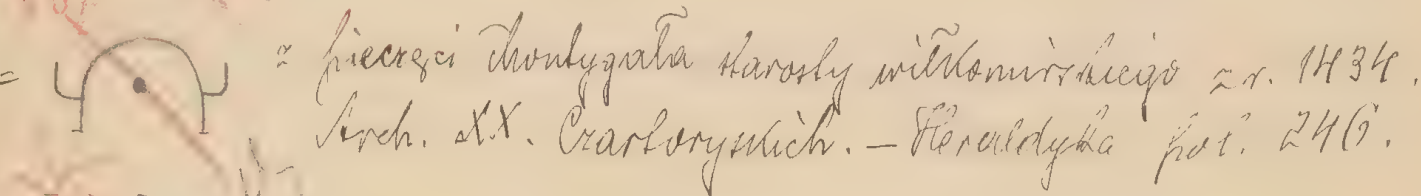 = z pieczęci Montygała starosty wiłkomirskiego z r. 1434.
Arch. XX. Czartoryskich. — Heraldyka poz. 246.